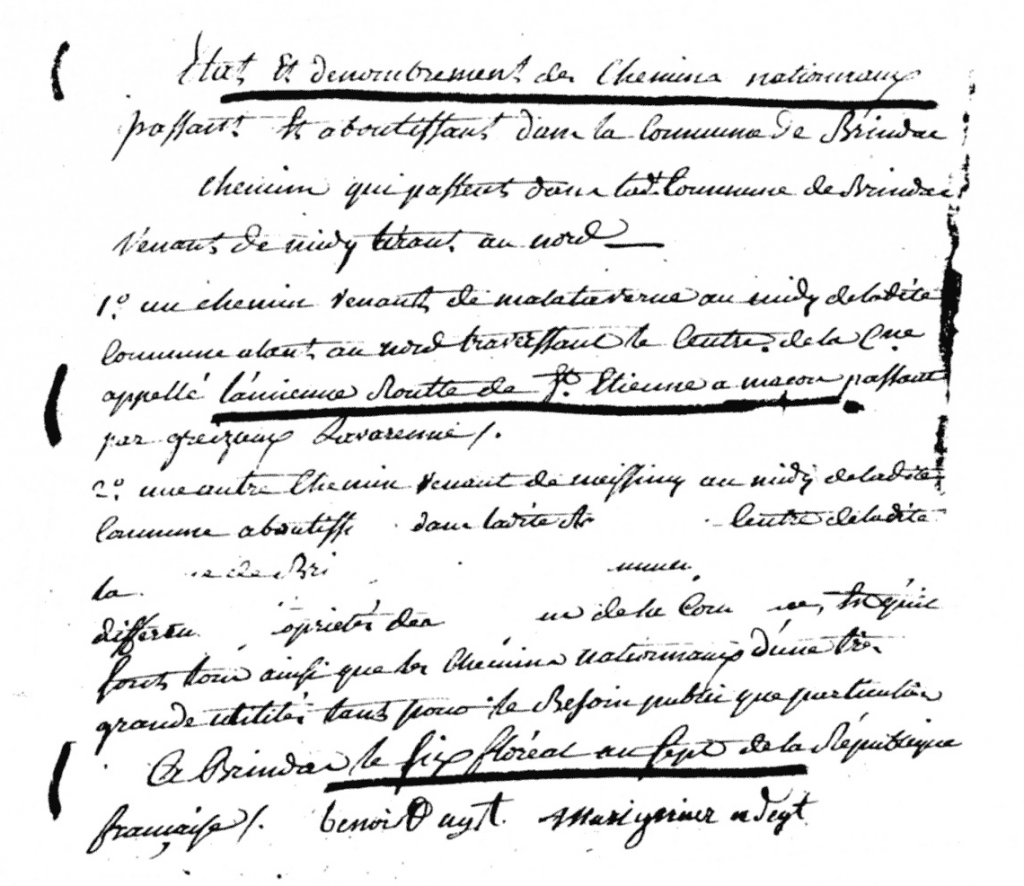 Etat Et denombrement des Chemins nationnaux
passant Et aboutissant dans la Commune de Brindas
chemin qui passent dans lad.te Commune de Brindas
venant de midy tirant au nord
1.o un chemin venant de malataverne au midy de ladite
Commune alant au nord traverssant le Centre de la C.ne
appellé l'ancienne Routte de S.t Etienne a macon passant
par Grezieux Lavarenne /.
2.o une autre Chemin venant de messimy au midy de ladite
Commune aboutiss dans ladite Centre de ladite
la ne de Bri mmun
differen opriétés des de la Com ne, Et qu'il
sont tous ainsi que les chemins nationnaux d'une très
grande utilités tant pour le Besoin public que particulier
a Brindas le six floréal an sept de la République
française /. benoit agt.